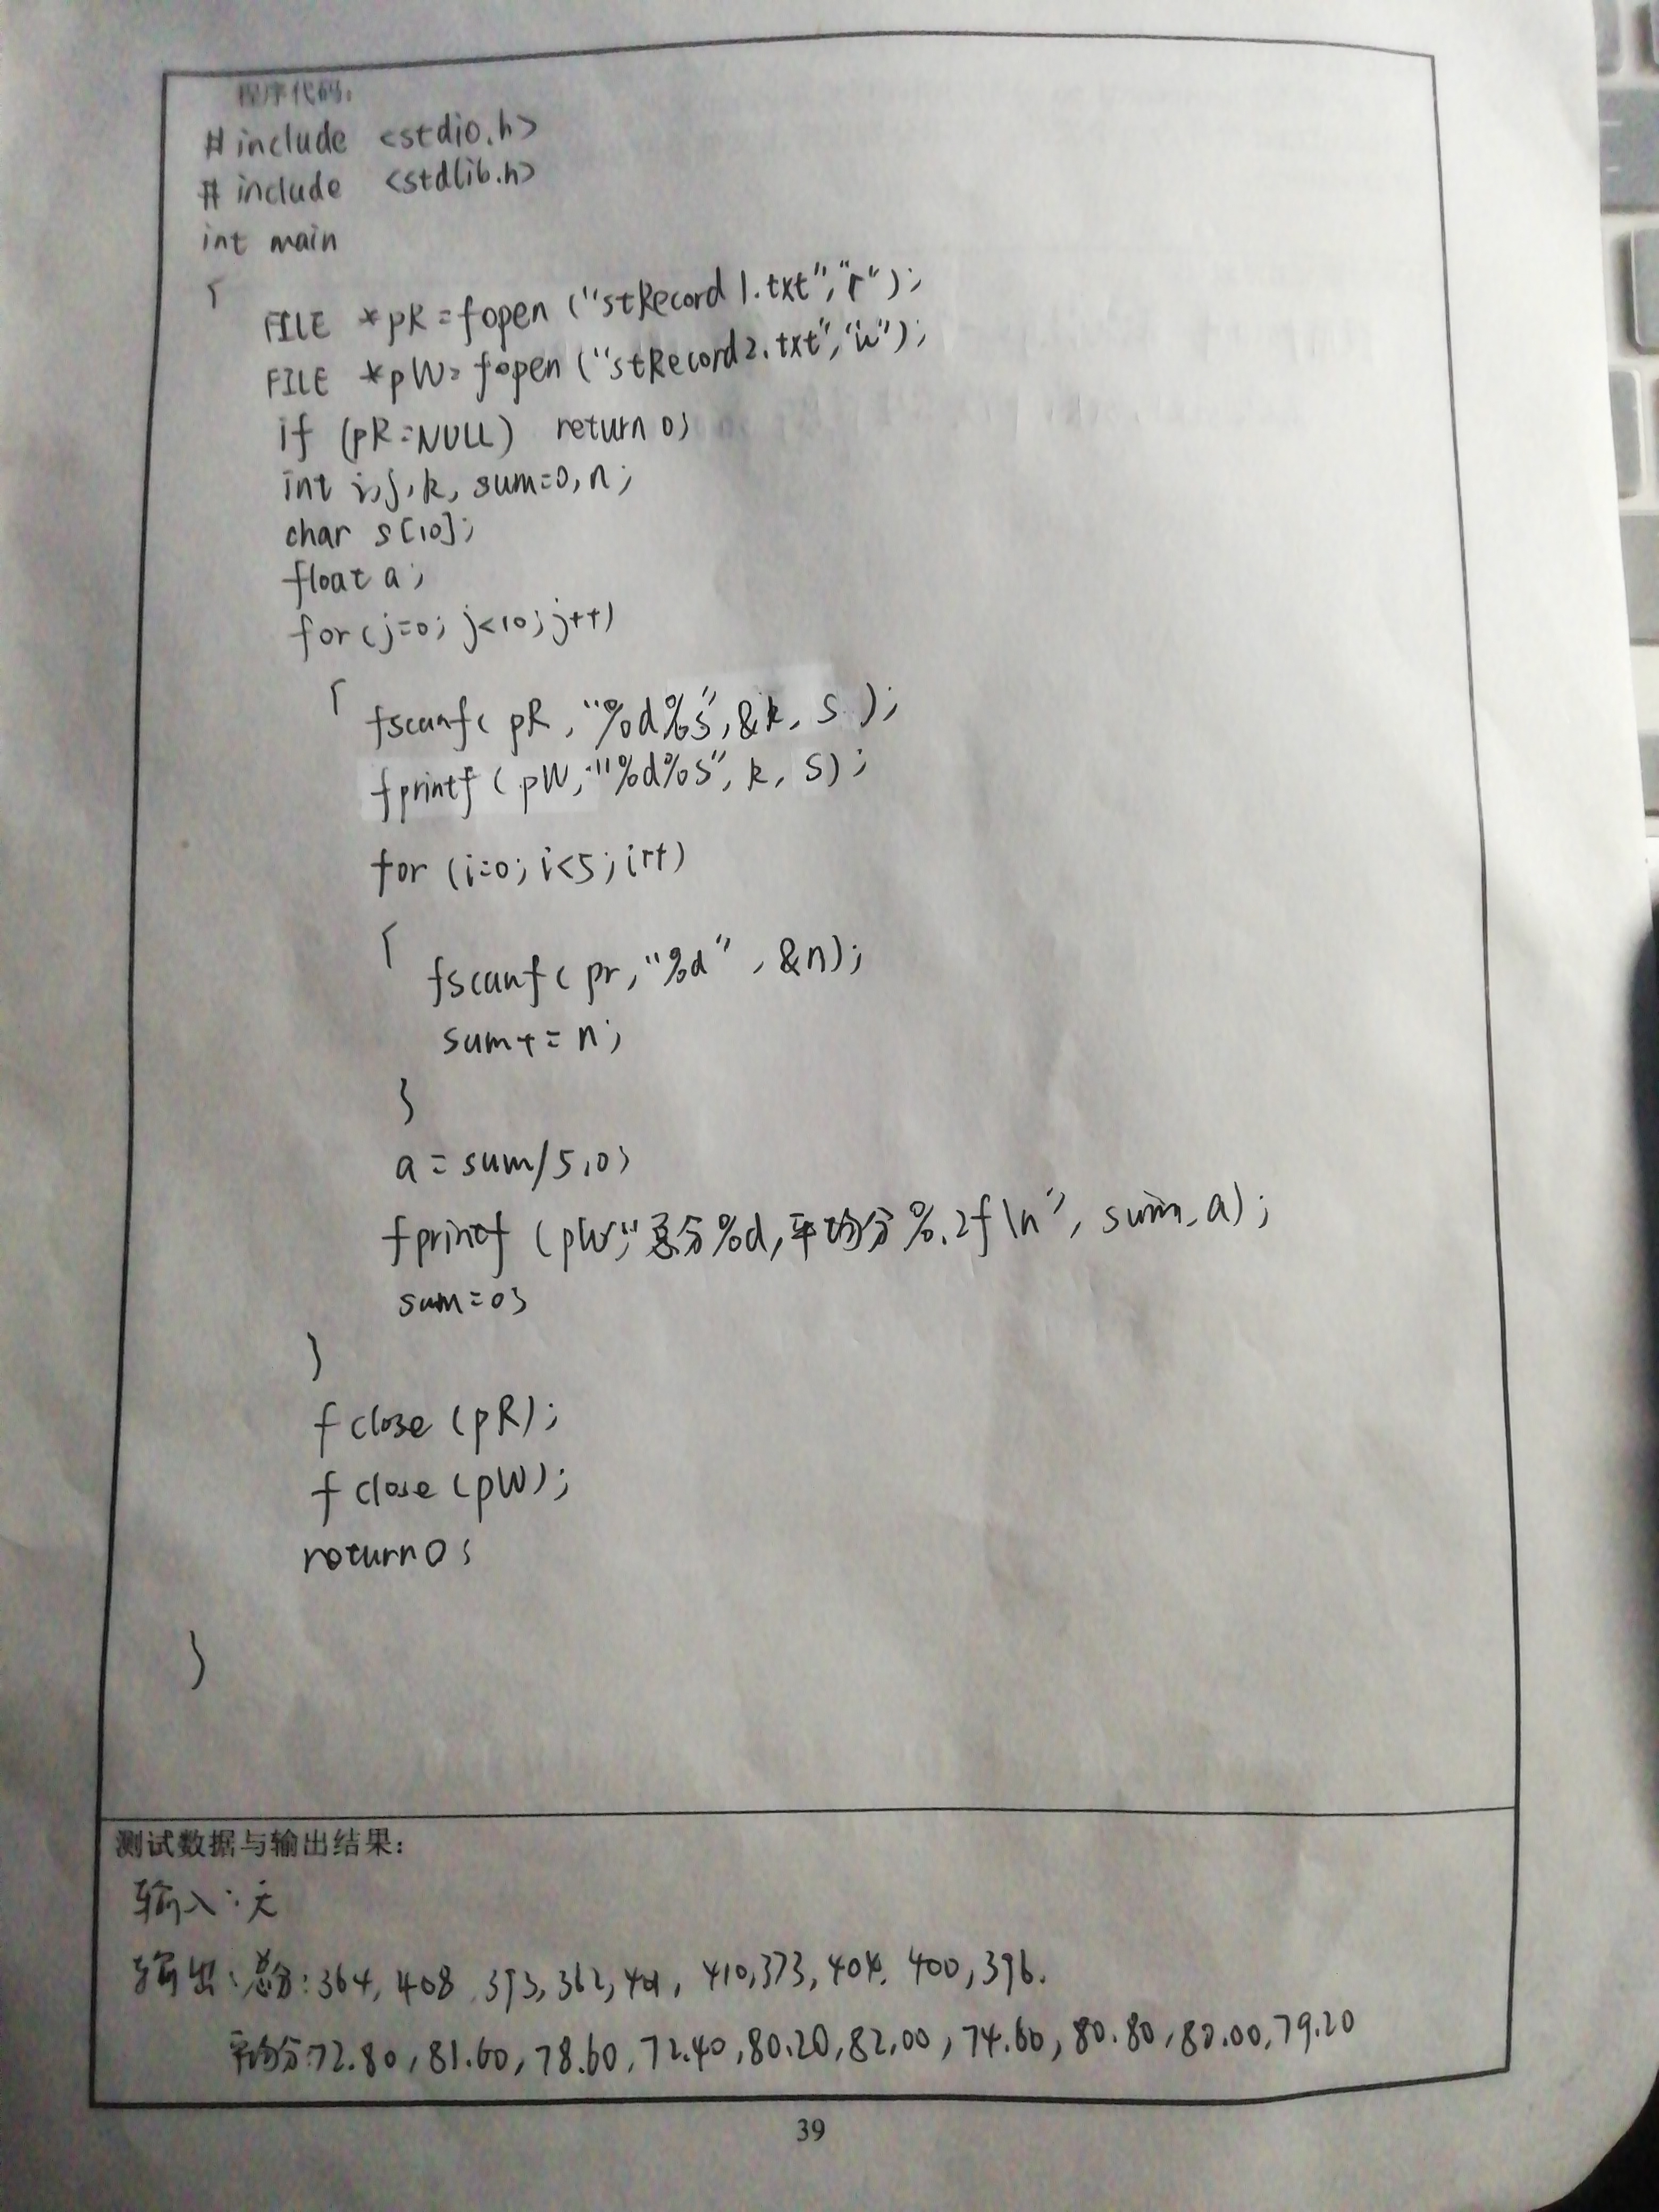 程序代码:
#include <stdio.h>
#include <stdlib.h>
int main
{
FILE *pR=fopen("stRecord1.txt","r");
FILE *pW=fopen("stRecord2.txt","w");
if (pR=NULL) return 0;
int i,j,k, sum=0,n;
char s[10];
float a;
for(j=0; j<10; j++)
{ fscanf( pR, "%d%s",&k, s );
fprintf( pW, "%d%s", k, s);
for (i=0; i<5; i++)
{ fscanf( pr, "%d" , &n);
sum+=n;
}
a = sum/5.0;
fprintf (pW,"总分%d,平均分%.2f\n", sum, a);
sum=0;
}
fclose (pR);
fclose (pW);
return 0;
}
测试数据与输出结果:
输入:无
输出:总分:364, 408, 393, 362, 401, 410, 373, 404, 400, 396.
平均分:72.80, 81.60, 78.60, 72.40, 80.20, 82.00, 74.60, 80.80, 80.00, 79.20
39